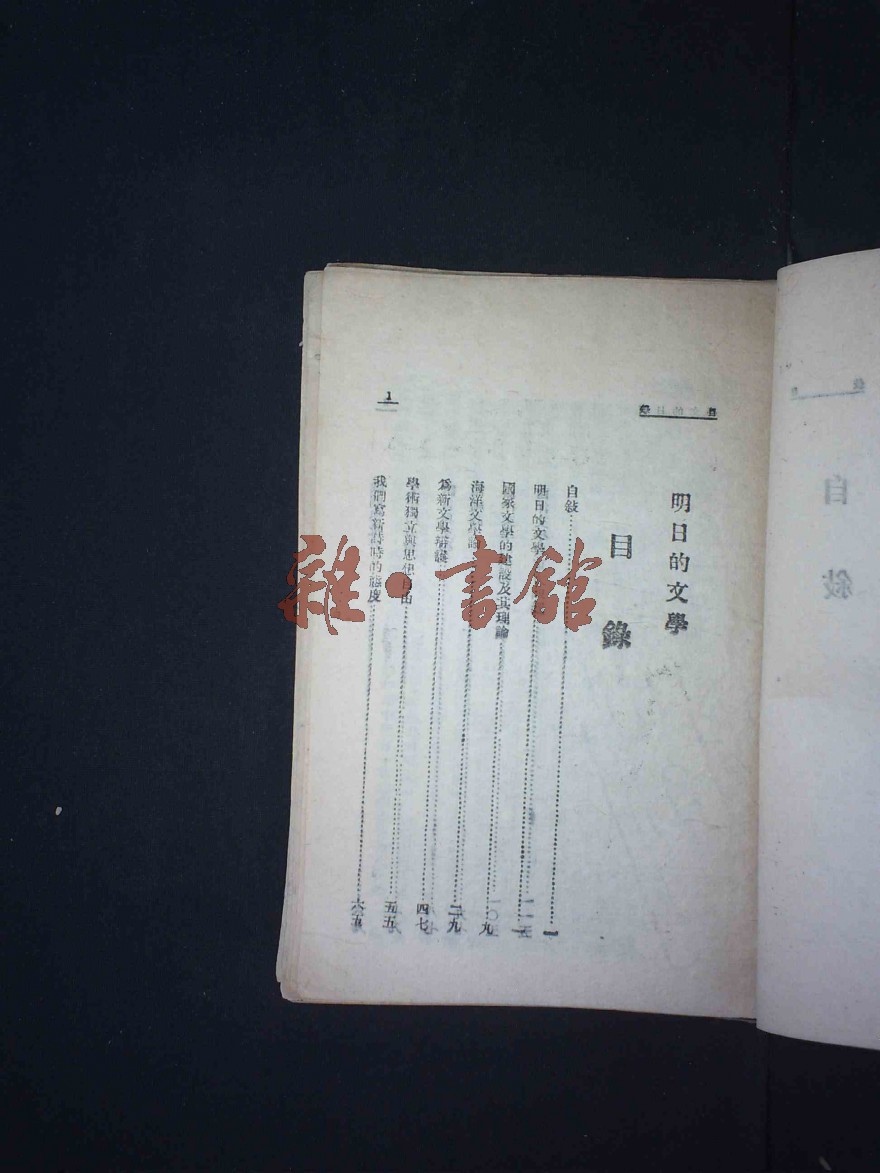 明日的文學
目錄
自敍
明日的文學
國家文學的建設及其理論
海洋文學論
爲新文學辯護 四七
學術獨立與思想自由 五五
我們寫新詩時的態度 六五
1
雜·書館
自敍